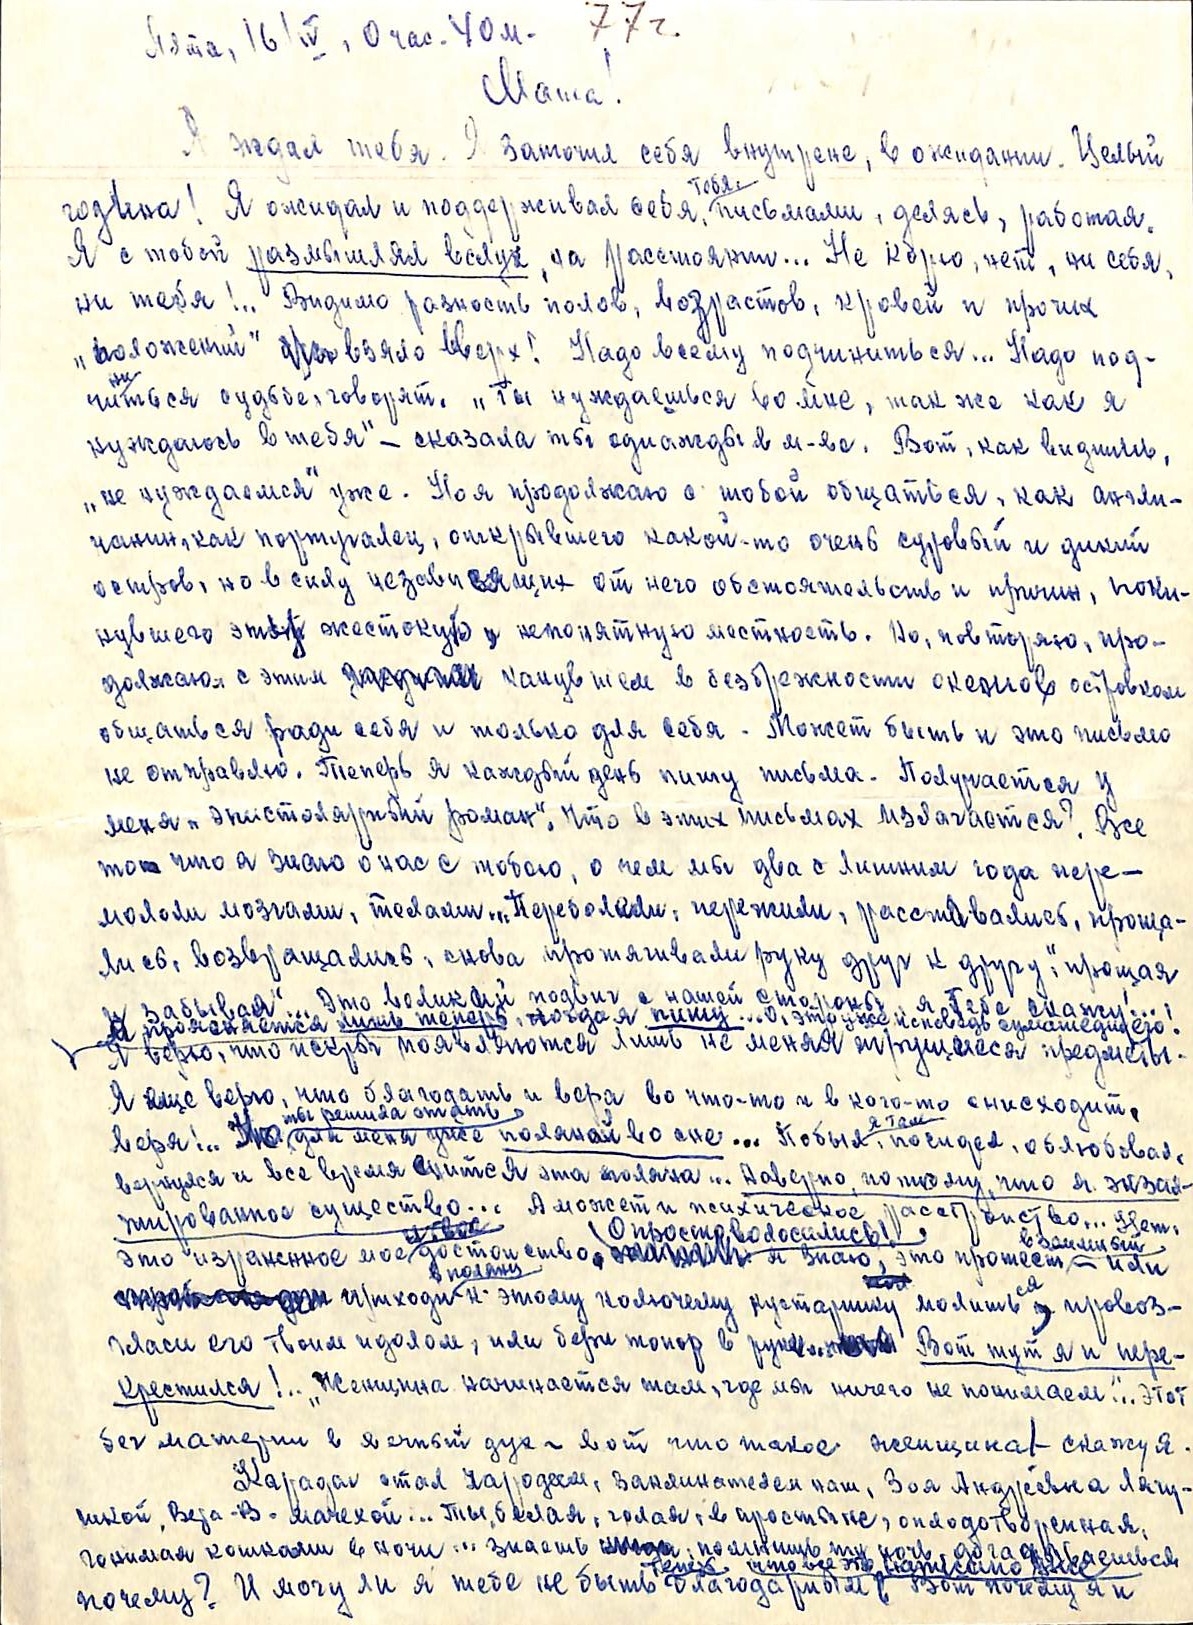 Ялта, 16/IV, 0 час. 40 м. 77 г.
Маша!
Я ждал тебя. Я заточил себя внутрене, в ожидании. Целый
год ина! Я ожидал и поддерживал себя, тобя. письмами, делясь, работая.
Я с тобой размышлял вслух, на расстоянии... Не корю, нет, ни себя,
ни тебя!.. Видимо разность полов, возрастов, кровей и прочих
„положений" взяло вверх! Надо всему подчиниться... Надо под-
читься ни судьбе, говорят. „Ты нуждаешься во мне, так же как я
нуждаюсь в тебя" – сказала ты однажды в м-ве. Вот, как видишь,
„не нуждаемся" уже. Но я продолжаю с тобой общаться, как англи-
чанин, как португалец, открывшего какой-то очень суровый и дикий
остров, но в силу независящих от него обстоятельств и причин, поки-
нувшего эту жестокую, непонятную местность. Но, повторяю, про-
должаю с этим канувшем в безбрежности океанов островком
общаться ради себя и только для себя. Может быть и это письмо
не отправлю. Теперь я каждый день пишу письма. Получается у
меня „эпистолярный роман". Что в этих письмах излагается? Все
то что я знаю о нас с тобою, о чем мы два с лишним года пере-
мололи мозгами, телами... „Переболели, пережили, расставались, проща-
лись, возвращались, снова протягивали руку друг к другу", „прощая
и забывая"... Это великий подвиг с нашей стороны, я тебе скажу!...
А проясняется лишь теперь, когда я пишу... О, это уже исповедь сумасшедшего!
Я верю, что искры появляются лишь не меняя трущиеся предметы.
Я еще верю, что благодать и вера во что-то и в кого-то снисходит,
веря!.. ты решила стать для меня уже поляной во сне... Побыл я там, посидел, облюбовал,
вернулся и все время снится эта поляна... Наверно, потому, что я экзал-
тированное существо... А может и психическое расстройство... Нет,
это израненное мое и твое достоинство, О просто волосились! я знаю, это протест взаимный – или
приходи в поляну к этому колючему кустарнику молиться, провоз-
гласи его твоим идолом, или бери топор в руки... Вот тут я и пере-
крестился!.. „Женщина начинается там, где мы ничего не понимаем"... Этот
бег материи в вечный дух – вот что такое женщина! – скажу я.
Карадаг стал чародеем, заклинателем нам, Зоя Андреевна лягу-
шкой, Вера-В- мачехой... Ты, белая, голая, в простыне, оплодотворенная,
гонимая кошками в ночи... знаешь помнишь ту ночь, догадываешься
почему? И могу ли я тебе не быть благодарным теперь, что все это написано уже Вот почему я и